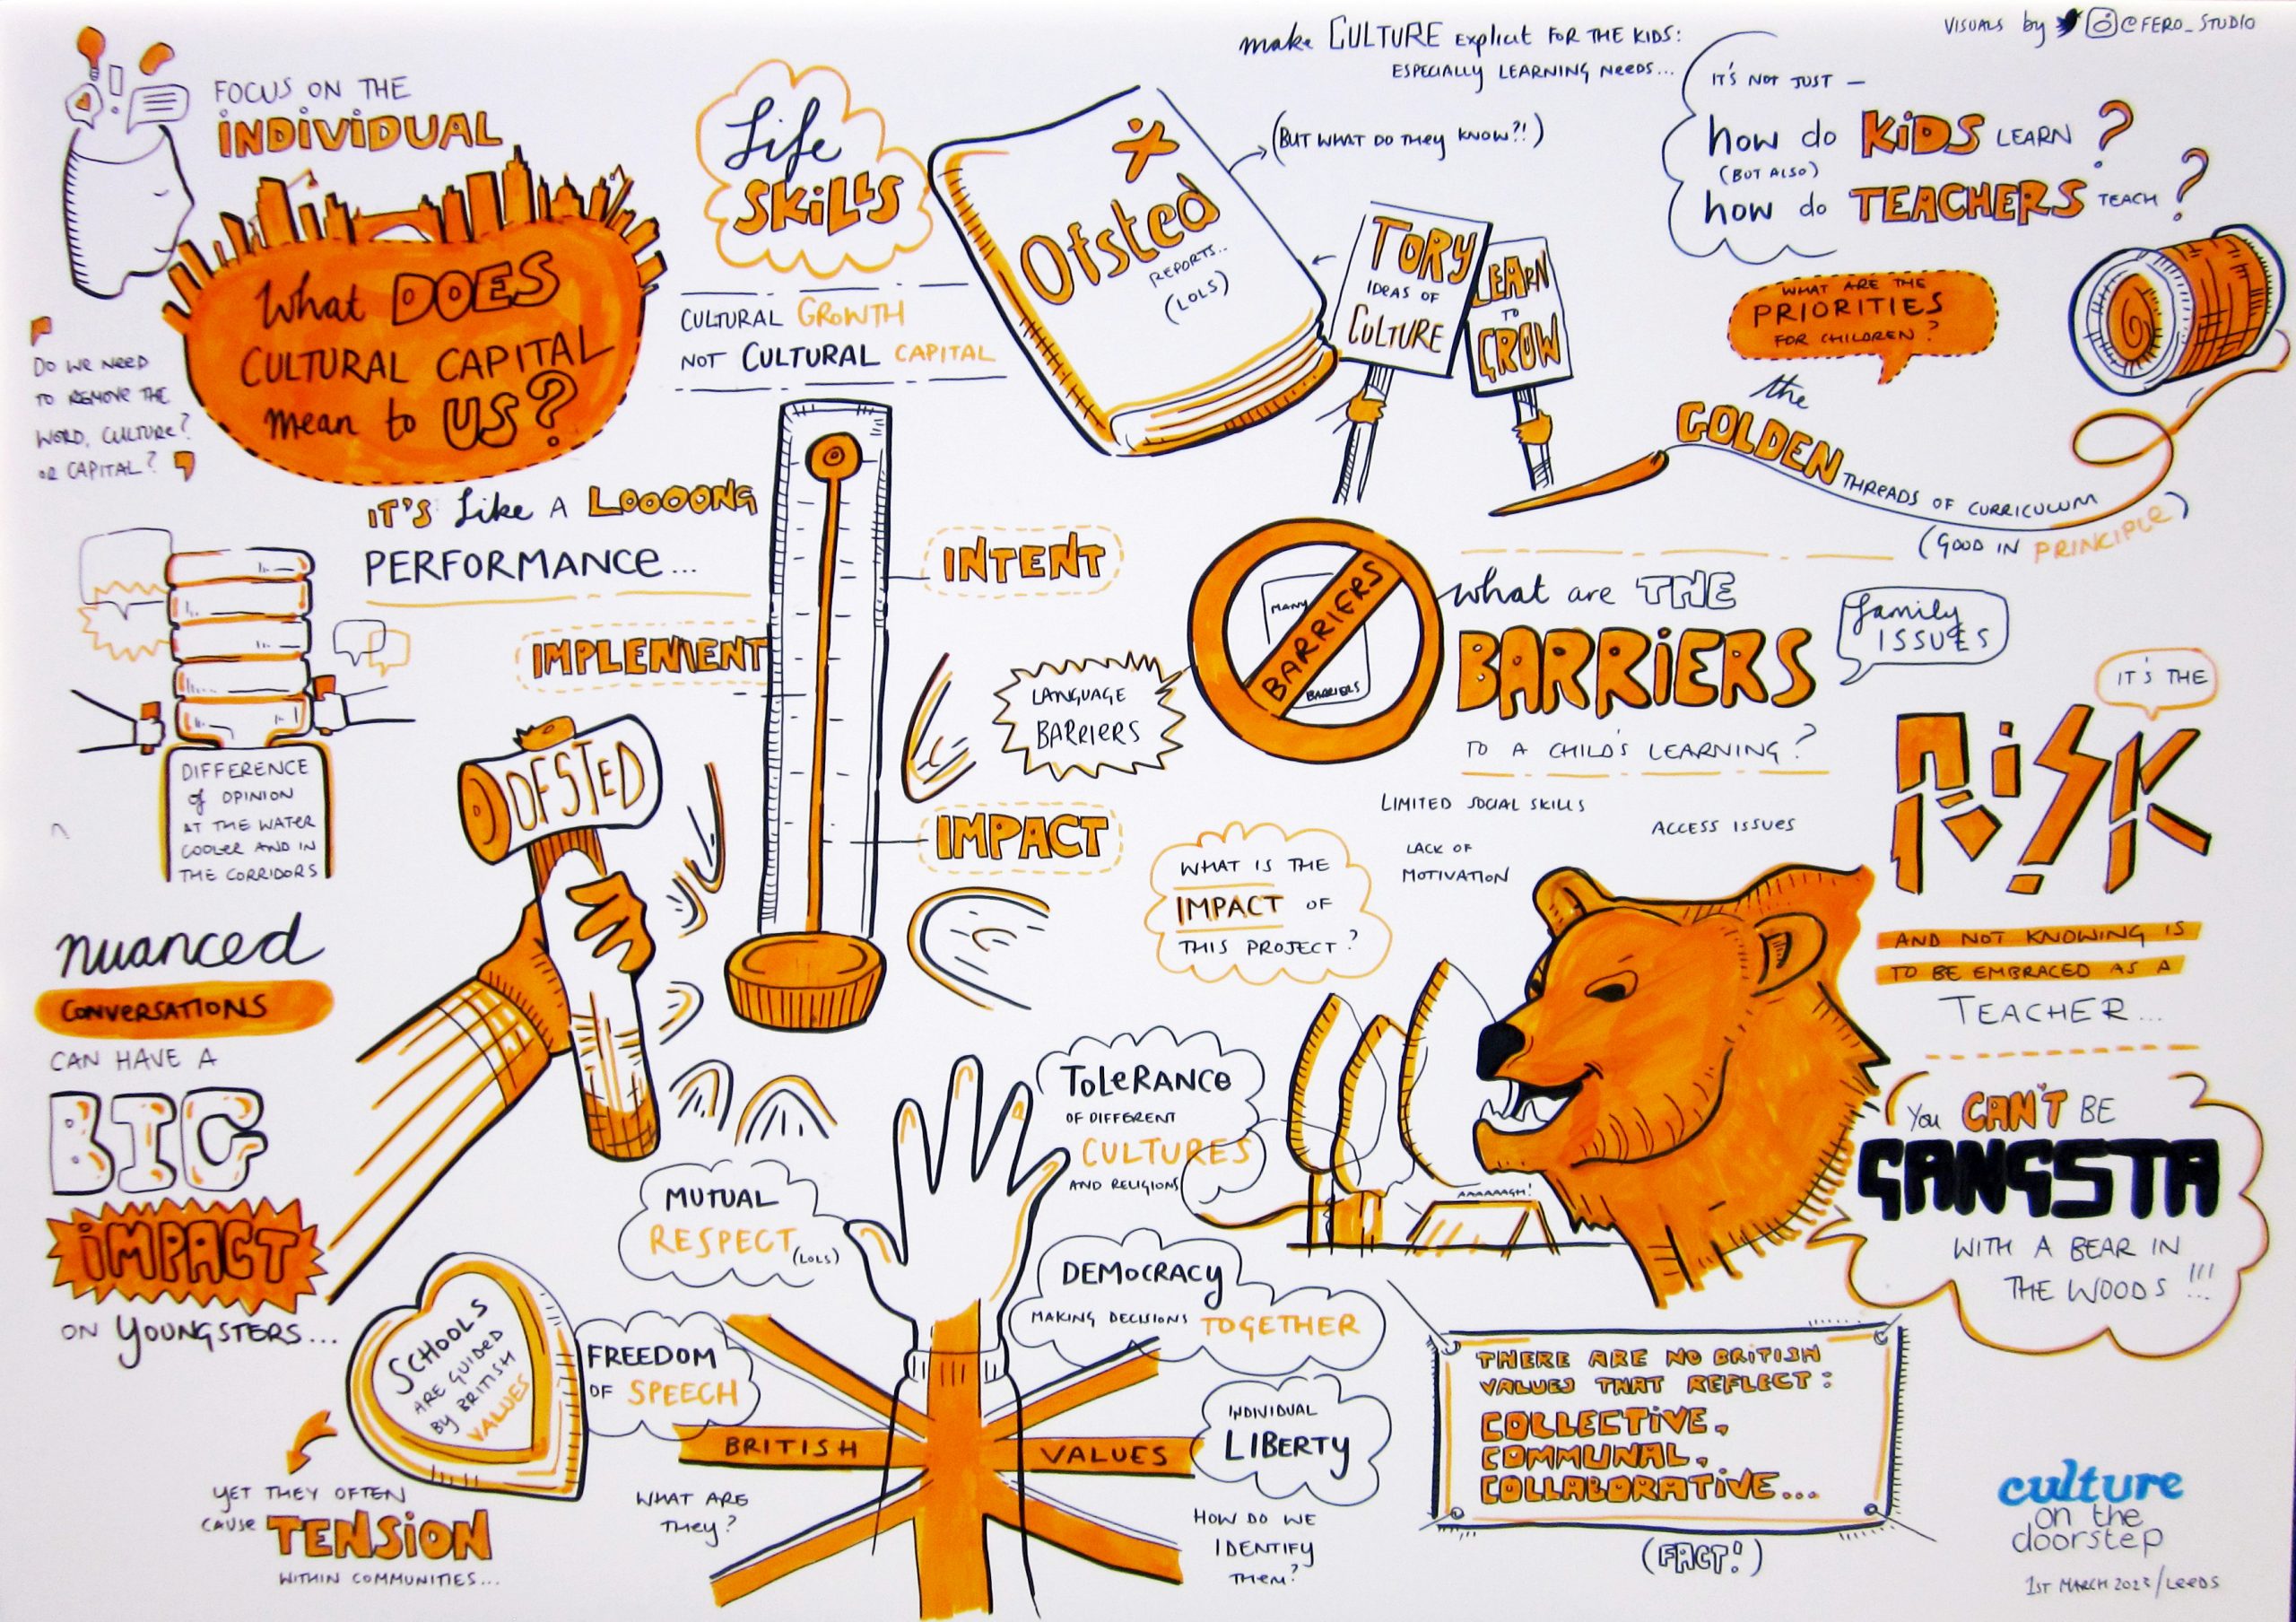 FOCUS ON THE
INDIVIDUAL
What DOES
CULTURAL CAPITAL
mean to US?
DO WE NEED
TO REMOVE THE
WORD, CULTURE?
OR CAPITAL?
Life
SKILLS
CULTURAL GROWTH
NOT CULTURAL CAPITAL
Ofsted
REPORTS...
(LOLS)
make CULTURE explicit FOR THE KIDS:
ESPECIALLY LEARNING NEEDS...
(BUT WHAT DO THEY KNOW?!)
TORY
IDEAS OF
CULTURE
LEARN
TO
GROW
VISUALS by @FERO_STUDIO
IT'S NOT JUST —
how do KIDS LEARN?
(BUT ALSO)
how do TEACHERS TEACH?
WHAT ARE THE
PRIORITIES
FOR CHILDREN?
the
GOLDEN THREADS OF CURRICULUM
(GOOD IN PRINCIPLE)
IT'S Like A LOOOONG
PERFORMANCE...
INTENT
IMPLEMENT
IMPACT
OFSTED
DIFFERENCE
of OPINION
AT THE WATER
COOLER AND IN
THE CORRIDORS
nuanced
CONVERSATIONS
CAN HAVE A
BIG
IMPACT
ON YOUNGSTERS...
LANGUAGE
BARRIERS
MANY
BARRIERS
BARRIERS
What are THE
BARRIERS
TO A CHILD'S LEARNING?
family
ISSUES
LIMITED SOCIAL SKILLS
ACCESS ISSUES
LACK OF
MOTIVATION
WHAT IS THE
IMPACT OF
THIS PROJECT?
IT'S THE
RISK
AND NOT KNOWING IS
TO BE EMBRACED AS A
TEACHER...
YOU CAN'T BE
GANGSTA
WITH A BEAR IN
THE WOODS!!!
AAAAAAGH!
TOLERANCE
OF DIFFERENT
CULTURES
AND RELIGIONS
MUTUAL
RESPECT
(LOLS)
DEMOCRACY
MAKING DECISIONS TOGETHER
FREEDOM
OF SPEECH
INDIVIDUAL
LIBERTY
BRITISH VALUES
WHAT ARE
THEY?
HOW DO WE
IDENTIFY
THEM?
SCHOOLS
ARE GUIDED
BY BRITISH
VALUES
YET THEY OFTEN
CAUSE TENSION
WITHIN COMMUNITIES...
THERE ARE NO BRITISH
VALUES THAT REFLECT:
COLLECTIVE,
COMMUNAL,
COLLABORATIVE...
(FACT!)
culture
on the
doorstep
1ST MARCH 2023/LEEDS